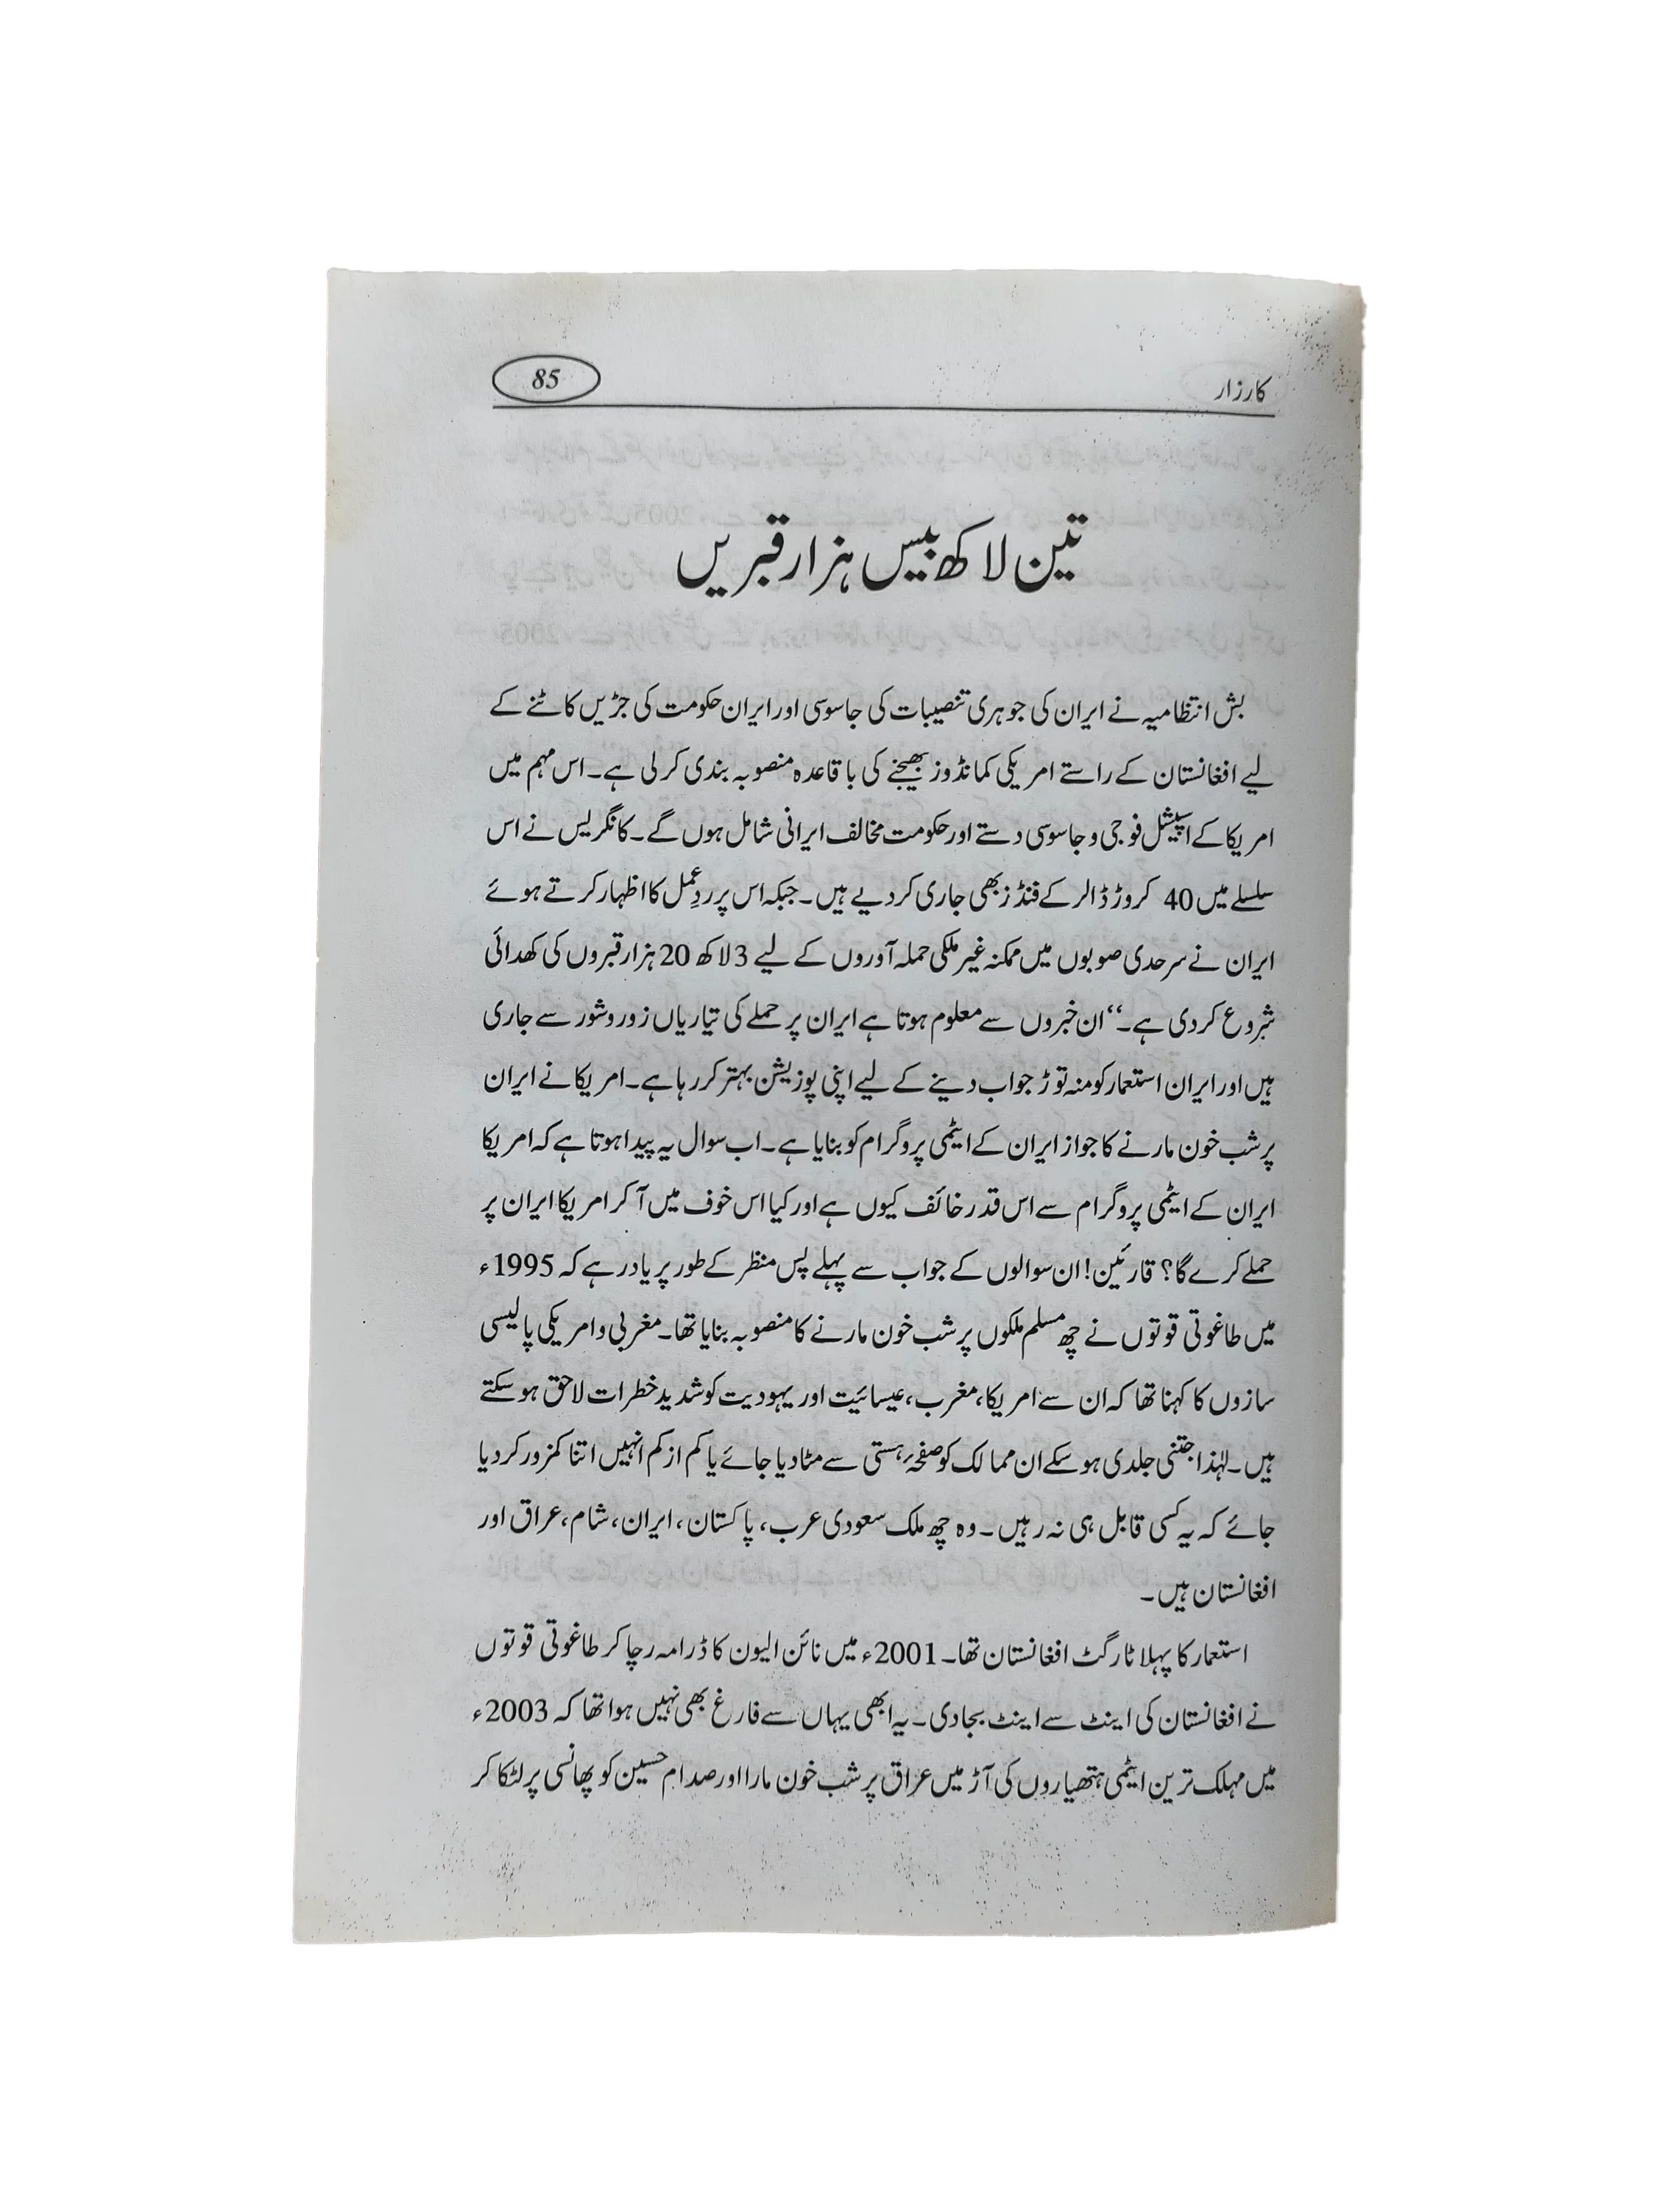 کارزار
85
تین لاکھ بیس ہزار قبریں
بش انتظامیہ نے ایران کی جوہری تنصیبات کی جاسوسی اور ایران حکومت کی جڑیں کاٹنے کے
لیے افغانستان کے راستے امریکی کمانڈوز بھیجنے کی باقاعدہ منصوبہ بندی کرلی ہے۔ اس مہم میں
امریکا کے اسپیشل فوجی و جاسوسی دستے اور حکومت مخالف ایرانی شامل ہوں گے۔ کانگریس نے اس
سلسلے میں 40 کروڑ ڈالر کے فنڈز بھی جاری کردیے ہیں۔ جبکہ اس پر ردِعمل کا اظہار کرتے ہوئے
ایران نے سرحدی صوبوں میں ممکنہ غیر ملکی حملہ آوروں کے لیے 3 لاکھ 20 ہزار قبروں کی کھدائی
شروع کردی ہے۔‘‘ ان خبروں سے معلوم ہوتا ہے ایران پر حملے کی تیاریاں زور وشور سے جاری
ہیں اور ایران استعمار کو منہ توڑ جواب دینے کے لیے اپنی پوزیشن بہتر کر رہا ہے۔ امریکا نے ایران
پر شب خون مارنے کا جواز ایران کے ایٹمی پروگرام کو بنایا ہے۔ اب سوال یہ پیدا ہوتا ہے کہ امریکا
ایران کے ایٹمی پروگرام سے اس قدر خائف کیوں ہے اور کیا اس خوف میں آ کر امریکا ایران پر
حملے کرے گا؟ قارئین! ان سوالوں کے جواب سے پہلے پس منظر کے طور پر یاد رہے کہ 1995ء
میں طاغوتی قوتوں نے چھ مسلم ملکوں پر شب خون مارنے کا منصوبہ بنایا تھا۔ مغربی و امریکی پالیسی
سازوں کا کہنا تھا کہ ان سے امریکا، مغرب، عیسائیت اور یہودیت کو شدید خطرات لاحق ہوسکتے
ہیں۔ لہٰذا جتنی جلدی ہوسکے ان ممالک کو صفحۂ ہستی سے مٹادیا جائے یا کم از کم انہیں اتنا کمزور کردیا
جائے کہ یہ کسی قابل ہی نہ رہیں۔ وہ چھ ملک سعودی عرب، پاکستان، ایران، شام، عراق اور
افغانستان ہیں۔
استعمار کا پہلا ٹارگٹ افغانستان تھا۔ 2001ء میں نائن الیون کا ڈرامہ رچا کر طاغوتی قوتوں
نے افغانستان کی اینٹ سے اینٹ بجادی۔ یہ ابھی یہاں سے فارغ بھی نہیں ہوا تھا کہ 2003ء
میں مہلک ترین ایٹمی ہتھیاروں کی آڑ میں عراق پر شب خون مارا اور صدام حسین کو پھانسی پر لٹکا کر